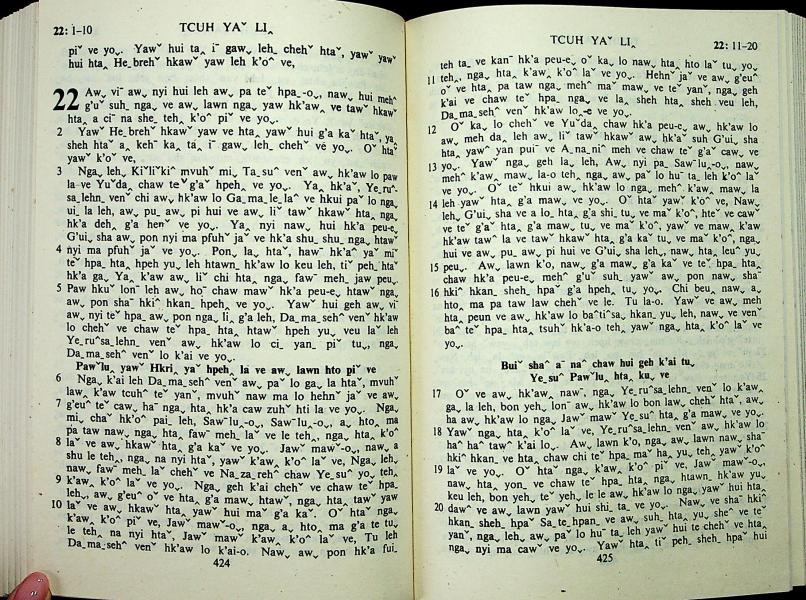 22: 1-10
TCUH YAˇ LI‸
piˇ ve yo⌄. Yawˇ hui ta‸ i¯ gaw⌄ leh_ chehˇ htaˇ, yawˇ yawˇ
hui hta‸ He_brehˇ hkawˇ yaw leh k'oˆ ve,
22 Aw⌄ vi¯ aw⌄ nyi hui leh aw⌄ pa teˇ hpa_-o⌄, naw⌄ hui mehˆ
g'uˇ suh_ nga⌄ ve aw⌄ lawn nga⌄ yaw hk'aw⌄ ve tawˇ hkawˇ
hta‸ a ciˆ na she_ teh‸ k'oˆ piˇ ve yo⌄.
2 Yawˇ He_brehˇ hkawˇ yaw ve hta‸ yawˇ hui g'a kaˇ htaˇ, ya⌄
sheh htaˇ a‸ kehˇ ka‸ ta‸ i¯ gaw⌄ leh_ chehˇ ve yo⌄. Oˇ htaˇ
yawˇ k'oˇ ve,
3 Nga⌄ leh⌄ Ki¯liˇki¯ mvuhˇ mi_ Ta_suˆ venˇ aw⌄ hk'aw lo paw
la-ve Yuˇda⌄ chaw teˇ g'aˇ hpeh⌄ ve yo⌄. Ya‸ hk'aˇ, Ye_ruˆ-
sa_lehn⌄ venˇ chi aw⌄ hk'aw lo Ga_ma_le_laˆ ve hkui paˇ lo nga⌄
ui_ la leh, aw⌄ pu_ aw⌄ pi hui ve aw⌄ liˇ tawˇ hkawˇ hta‸ nga⌄
hk'a deh‸ g'a henˇ ve yo⌄. Ya nyi nawˇ hui hk'a peu-e⌄
G'ui⌄ sha aw⌄ pon nyi ma pfuhˇ jaˇ ve hk'a shu_ shu_ nga⌄ htawˇ
4 nyi ma pfuhˇ jaˇ ve yo⌄. Pon⌄ la‸ htaˇ, hawˇ hk'aˆ yaˇ miˇ
teˇ hpa_ hta‸ hpeh yu⌄ leh htawn‸ hk'aw lo keu leh, ti¯ peh_ htaˇ
hk'a ga‸ Ya‸ k'aw aw⌄ liˇ chi hta‸ nga⌄ fawˇ meh_ jaw peu⌄.
5 Paw hkuˇ lonˇ leh aw⌄ hoˆ chaw mawˇ hk'a peu-e⌄ htawˇ nga⌄
aw⌄ pon shaˇ hkiˆ hkan_ hpeh⌄ ve yo⌄. Yawˇ hui geh aw⌄ viˇ
aw⌄ nyi teˇ hpa_ aw⌄ pon nga⌄ li_ g'a leh, Da_ma_sehˆ venˇ hk'aw
lo chehˇ ve chaw teˇ hpa_ hta‸ htawˇ hpeh yu⌄ veu laˇ leh
Ye_ruˆsa_lehn⌄ venˇ aw⌄ hk'aw lo ci_ yan_ piˇ tu⌄, nga⌄
Da_ma_sehˆ venˇ lo k'ai ve yo⌄.
Pawˇlu⌄ yawˇ Hkri‸ yaˇ hpeh‸ la ve aw⌄ lawn hto piˇ ve
6 Nga⌄ k'ai leh Da_ma_sehˆ venˇ aw⌄ paˇ lo ga_ la htaˇ, mvuhˇ
law‸ k'aw tcuhˇ teˇ yanˇ, mvuhˇ naw ma lo hehnˇ jaˇ ve aw⌄
7 g'euˆ teˇ caw⌄ haˉ nga⌄ hta‸ hk'a caw zuhˇ hti la ve yo⌄. Nga⌄
mi_ chaˇ hk'oˆ pai_ leh, Sawˇlu⌄-o⌄, Sawˇlu⌄-o⌄, a⌄ hto‸ ma
pa taw naw⌄ nga⌄ hta‸ fawˇ meh_ laˇ ve le teh‸, nga⌄ hta‸ k'oˆ
8 laˇ ve aw⌄ hkawˇ hta‸ g'a kaˇ ve yo⌄. Jawˇ mawˇ-o⌄, naw⌄ a
shu le teh‸, nga⌄ na nyi htaˇ, yawˇ k'aw‸ k'oˆ la ve, Nga⌄ leh⌄
naw⌄ fawˇ meh_ la⌄ chehˇ ve Na_za_rehˆ chaw Ye_suˆ yo⌄ teh‸
9 k'aw‸ k'oˆ laˇ ve yo⌄. Nga⌄ geh k'ai chehˇ ve chaw teˇ hpa_
leh⌄, aw⌄ g'euˆ oˇ ve hta‸ g'a maw⌄ htawˇ, nga⌄ hta‸ tawˇ yaw
10 laˇ ve aw⌄ hkawˇ hta‸ yawˇ hui maˇ g'a kaˇ. Oˇ htaˇ nga⌄
k'aw‸ k'oˆ piˇ ve, Jawˇ mawˇ-o⌄, nga⌄ a⌄ hto‸ ma g'a te tu⌄
le teh‸ na nyi htaˇ, Jawˇ mawˇ k'aw‸ k'oˆ laˇ ve, Tu leh
Da_ma_sehˆ venˇ hk'aw lo k'ai-o. Naw⌄ aw⌄ pon hk'a fui_
424
TCUH YAˇ LI‸
22: 11-20
teh ta‸ ve kanˉ hk'a peu-e⌄ oˇ ka⌄ lo naw⌄ hta‸ hto laˇ tu⌄ yo⌄
11 teh‸, nga⌄ hta‸ k'aw‸ k'oˆ laˇ ve yo⌄. Hehnˇ jaˇ ve aw⌄ g'euˆ
oˇ ve hta‸ pa taw nga⌄ mehˆ maˇ maw⌄ ve teˇ yanˇ, nga⌄ geh
k'ai ve chaw teˇ hpa_ nga⌄ ve la‸ sheh hta‸ sheh veu leh,
Da_ma_sehˆ venˇ hk'aw lo⌄-e ve yo⌄.
12 Oˇ ka⌄ lo chehˇ ve Yuˇda⌄ chaw hk'a peu-e⌄ aw⌄ hk'aw lo
aw⌄ meh da_ leh aw⌄ liˇ tawˇ hkawˇ aw⌄ hk'aˇ suh G'ui⌄ sha
hta‸ yawˆ yan puiˉ ve A_na_niˆ meh ve chaw teˇ g'aˇ caw⌄ ve
13 yo⌄. Yawˇ nga⌄ geh la⌄ leh, Aw⌄ nyi pa_ Sawˇlu⌄-o⌄, naw⌄
mehˆ k'aw‸ maw⌄ la-o teh‸ nga⌄ aw⌄ paˇ lo huˉ ta⌄ leh k'oˆ laˇ
ve yo⌄. Oˇ teˇ hkui aw⌄ hk'aw lo nga⌄ mehˆ k'aw‸ maw⌄ la
14 leh yawˇ hta‸ g'a maw⌄ ve yo⌄. Oˇ htaˇ yawˇ k'oˆ ve, Naw⌄
leh⌄ G'ui⌄ sha ve a lo‸ hta‸ g'a shi_ tu⌄ ve maˇ k'oˆ, hteˇ ve caw⌄
ve teˇ g'aˇ hta‸ g'a maw⌄ tu⌄ ve maˇ k'oˆ, yawˇ ve maw‸ k'aw
hk'aw tawˇ la ve tawˇ hkawˇ hta‸ g'a kaˇ tu⌄ ve maˇ k'oˆ, nga⌄
hui ve aw⌄ pu_ aw⌄ pi hui ve G'ui⌄ sha leh⌄, naw⌄ hta‸ leuˆ yu⌄
15 peu⌄. Aw⌄ lawn k'o, naw⌄ g'a maw⌄ g'a kaˇ ve teˇ hpa_ hta‸
chaw hk'a peu-e⌄ mehˆ g'uˇ suh_ yawˇ aw⌄ pon naw⌄ shaˉ
16 hkiˆ hkan_ sheh_ hpaˇ g'a hpeh_ tu⌄ yo⌄. Chi beu_ naw⌄ a⌄
hto‸ ma pa taw law chehˇ ve le. Tu la-o. Yawˇ ve aw⌄ meh
hta‸ peun ve aw⌄ hk'aw lo baˆtiˆsa_ hkan_ yu⌄ leh, naw⌄ ve venˉ
baˆ teˇ hpa_ hta‸ tsuhˇ hk'a-o teh‸ yawˇ nga⌄ hta‸ k'oˆ laˇ ve
yo⌄.
Buiˇ shaˆ aˉ naˆ chaw hui geh k'ai tu⌄
Ye_suˆ Pawˇlu⌄ hta‸ ku⌄ ve
17 Oˇ ve aw⌄ hk'aw⌄ nawˉ, nga⌄ Ye_ruˆsa_lehn⌄ venˇ lo k'aw‸
ga_ la leh, bon yeh⌄ lonˉ aw⌄ hk'aw lo bon law⌄ chehˇ htaˇ, aw⌄
ha aw⌄ hk'aw lo nga⌄ Jawˇ mawˇ Ye_suˆ hta‸ g'a maw⌄ ve yo⌄.
18 Yawˇ nga⌄ hta‸ k'oˆ laˇ ve, Ye_ruˆsa_lehn⌄ venˇ aw⌄ hk'aw lo
haˆ haˆ tawˇ k'ai lo. Aw⌄ lawn k'o, nga⌄ aw⌄ lawn naw⌄ shaˉ
hkiˆ hkan_ ve hta‸ chaw chi teˇ hpa_ maˇ ha‸ yu⌄ teh‸ yawˇ k'oˆ
19 laˇ ve yo⌄. Oˇ htaˇ nga⌄ k'aw‸ k'oˆ piˇ ve, Jawˇ mawˇ-o⌄,
naw⌄ hta‸ yon⌄ ve chaw teˇ hpa_ hta‸ nga⌄ htawn‸ hk'aw yu⌄
keu leh, bon yeh⌄ teˇ yeh⌄ le le aw⌄ hk'aw lo nga⌄ yawˇ hui hta‸
20 dawˆ ve aw⌄ lawn yawˇ hui shi_ ta‸ ve yo⌄. Naw⌄ ve shaˉ hkiˆ
hkan_ sheh_ hpaˇ Sa_te_hpan⌄ ve aw⌄ suh_ hta‸ yu⌄ sheˇ ve teˇ
yanˇ, nga⌄ leh⌄ aw⌄ paˇ lo huˉ ta⌄ leh yawˇ hui te chehˇ ve hta‸
nga⌄ nyi ma cawˇ ve yo⌄. Yawˇ hta‸ tiˇ peh_ sheh_ hpaˇ hui
425